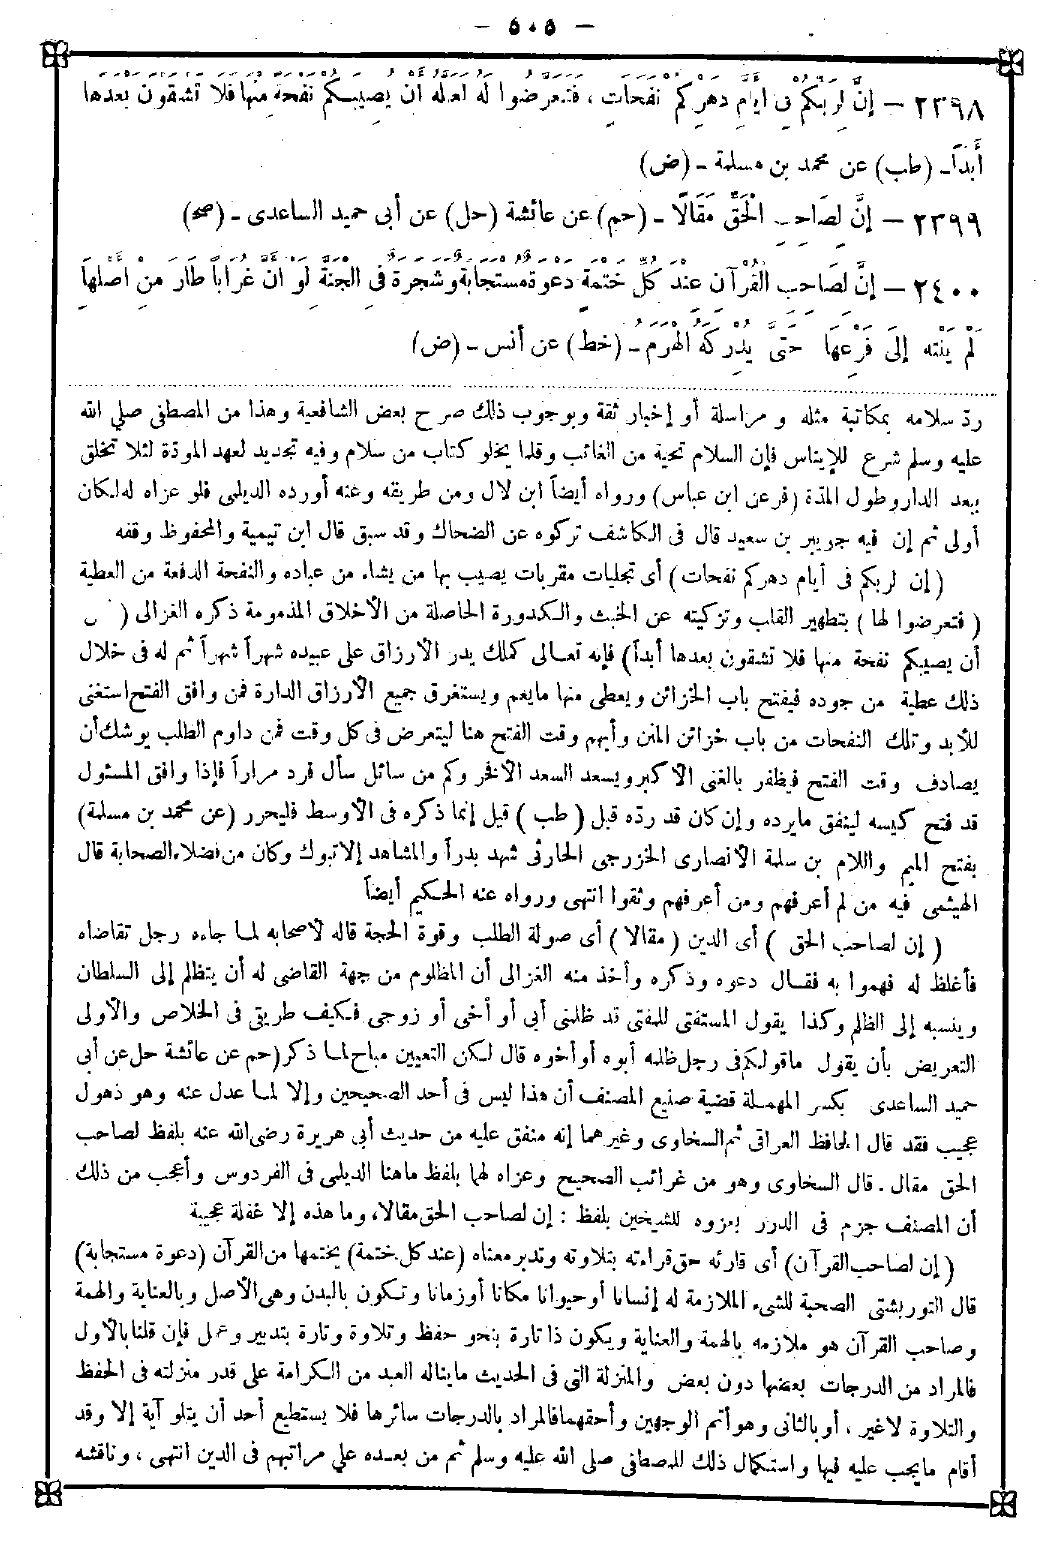 — ٥٠٥ —
٢٣٩٨ — إِنَّ لِرَبِّكُمْ فِى أَيَّامِ دَهْرِكُمْ نَفَحَاتٍ ، فَتَعَرَّضُوا لَهُ لَعَلَّهُ أَنْ يُصِيبَكُمْ نَفْحَةٌ مِنْهَا فَلَا تَشْقَوْنَ بَعْدَهَا
أَبَداً ـ (طب) عن محمد بن مسلمة ـ (ض)
٢٣٩٩ — إِنَّ لِصَاحِبِ الْحَقِّ مَقَالًا ـ (حم) عن عائشة (حل) عن أبى حميد الساعدى ـ (صح)
٢٤٠٠ — إِنَّ لِصَاحِبِ الْقُرْآنِ عِنْدَ كُلِّ خَتْمَةٍ دَعْوَةً مُسْتَجَابَةً وَشَجَرَةً فِى الْجَنَّةِ لَوْ أَنَّ غُرَاباً طَارَ مِنْ أَصْلِهَا
لَمْ يَنْتَهِ إِلَى فَرْعِهَا حَتَّى يُدْرِكَهُ الْهَرَمُ ـ (خط) عن أنس ـ (ض)
ردّ سلامه بمكاتبة مثله و مراسلة أو إخبار ثقة وبوجوب ذلك صرح بعض الشافعية وهذا من المصطفى صلى الله
عليه وسلم شرع للإيناس فإن السلام تحية من الغائب وقلما يخلو كتاب من سلام وفيه تجديد لعهد المودّة لئلا تخلق
ببعد الدار وطول المدّة (فر عن ابن عباس) ورواه أيضاً ابن لال ومن طريقه وعنه أورده الديلمى فلو عزاه له لكان
أولى ثم إن فيه جويبر بن سعيد قال فى الكاشف تركوه عن الضحاك وقد سبق قال ابن تيمية والمحفوظ وقفه
(إن لربكم فى أيام دهركم نفحات) أى تجليات مقربات يصيب بها من يشاء من عباده والنفحة الدفعة من العطية
(فتعرضوا لها) بتطهير القلب وتزكيته عن الخبث والكدورة الحاصلة من الأخلاق المذمومة ذكره الغزالى (
أن يصيبكم نفحة منها فلا تشقون بعدها أبداً) فإنه تعالى كملك يدر الأرزاق على عبيده شهراً شهراً ثم له فى خلال
ذلك عطية من جوده فيفتح باب الخزائن ويعطى منها مايعم ويستغرق جميع الأرزاق الدارة فمن وافق الفتح استغنى
للأبد وتلك النفحات من باب خزائن المنن وأبهم وقت الفتح هنا ليتعرض فى كل وقت فمن داوم الطلب يوشك أن
يصادف وقت الفتح فيظفر بالغنى الأكبر ويسعد السعد الأفخر وكم من سائل سأل فرد مراراً فإذا وافق المسئول
قد فتح كيسه لينفق مايرده وإن كان قد ردّه قبل (طب) قيل إنما ذكره فى الأوسط فليحرر (عن محمد بن مسلمة)
بفتح الميم واللام بن سلمة الأنصارى الخزرجى الحارثى شهد بدراً والمشاهد إلا تبوك وكان من فضلاء الصحابة قال
الهيثمى فيه من لم أعرفهم ومن أعرفهم وثقوا انتهى ورواه عنه الحكيم أيضاً
(إن لصاحب الحق) أى الدين (مقالا) أى صولة الطلب وقوة الحجة قاله لأصحابه لما جاءه رجل تقاضاه
فأغلظ له فهموا به فقال دعوه وذكره وأخذ منه الغزالى أن المظلوم من جهة القاضى له أن يتظلم إلى السلطان
وينسبه إلى الظلم وكذا يقول المستفتى للمفتى قد ظلمنى أبى أو أخى أو زوجى فكيف طريقى فى الخلاص والأولى
التعريض بأن يقول ماقولكم فى رجل ظلمه أبوه أو أخوه قال لكن التعيين مباح لما ذكر (حم عن عائشة حل عن أبى
حميد الساعدى بكسر المهملة قضية صنيع المصنف أن هذا ليس فى أحد الصحيحين وإلا لما عدل عنه وهو ذهول
عجيب فقد قال الحافظ العراقى ثم السخاوى وغيرهما إنه متفق عليه من حديث أبى هريرة رضى الله عنه بلفظ لصاحب
الحق مقال . قال السخاوى وهو من غرائب الصحيح وعزاه لهما بلفظ ماهنا الديلمى فى الفردوس وأعجب من ذلك
أن المصنف جزم فى الدرر بعزوه للشيخين بلفظ : إن لصاحب الحق مقالا، وما هذه إلا غفلة عجيبة
(إن لصاحب القرآن) أى قارئه حق قراءته بتلاوته وتدبر معناه (عند كل ختمة) يختمها من القرآن (دعوة مستجابة)
قال التوربشتى الصحبة للشىء الملازمة له إنسانا أو حيوانا مكانا أو زمانا وتكون بالبدن وهى الأصل وبالعناية والهمة
وصاحب القرآن هو ملازمه بالهمة والعناية ويكون ذا تارة بنحو حفظ وتلاوة وتارة بتدبير وعمل فإن قلنا بالأول
فالمراد من الدرجات بعضها دون بعض والمنزلة التى فى الحديث ماينالله العبد من الكرامة على قدر منزلته فى الحفظ
والتلاوة لاغير ، أو بالثانى وهو أتم الوجهين وأحقهما فالمراد بالدرجات سائرها فلا يستطيع أحد أن يتلو آية إلا وقد
أقام مايجب عليه فيها واستكمال ذلك للمصطفى صلى الله عليه وسلم ثم من بعده على مراتبهم فى الدين انتهى ، وناقشه